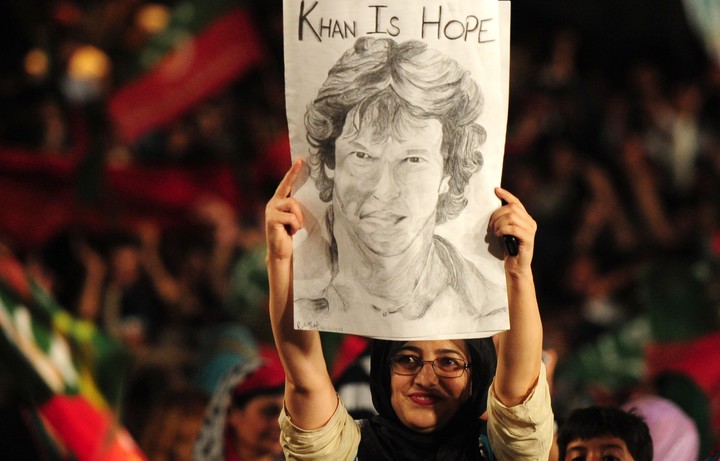 Khan Is Hope